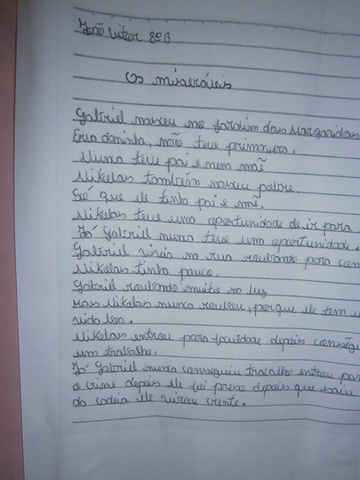 João Victor 8º B
Os miseráveis
Gabriel nasceu no Jardim das Margaridas
Erva daninha, não teve primavera.
Nunca teve pai e nem mãe
Nikolas também nasceu pobre
Só que ele tinha pai e mãe.
Nikolas teve uma oportunidade de ir para
Já Gabriel nunca teve uma oportunidade
Gabriel vivia na rua roubando para com
Nikolas tinha pouco.
Gabriel roubando muito na luz
mas Nikolas nunca roubou, porque ele tem u
vida boa.
Nikolas entrou para faculdade depois conség
um trabalho.
Já Gabriel nunca conseguiu trabalho entrou par
o crime depois ele foi preso depois que saiu
da cadeia ele virou crente.